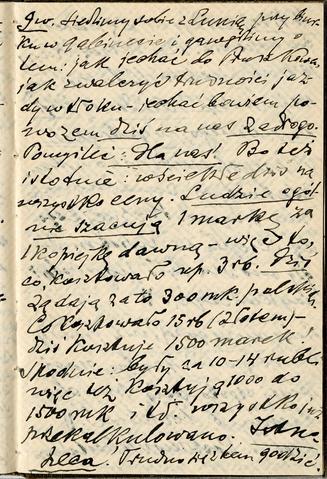 9w. Siedzimy sobie z Lunią przy biur-
ku w gabinecie i gawędzimy o
tem: jak jechać do Druskienik,
jak zwalczyć trudności jaz-
dy w tłoku – jechać bowiem po-
wozem dziś na nas za drogo.
Pomyśleć: dla nas! Bo też
istotnie: wściekłe dziś na
wszystko ceny. Ludzie ogól-
nie szacują 1 markę za
1 kopiejkę dawną – więc to,
co kosztowało np. 3 rb. dziś
żądają za to 300 mk. polskich.
Co kosztowało 15 rb (złotem) –
dziś kosztuje 1500 marek!
Spodnie: były za 10–14 rubli
więc też kosztują 1000 do
1500 mk i t d. wszystko już
przekalkulowano.
Trudno się z tem godzić.